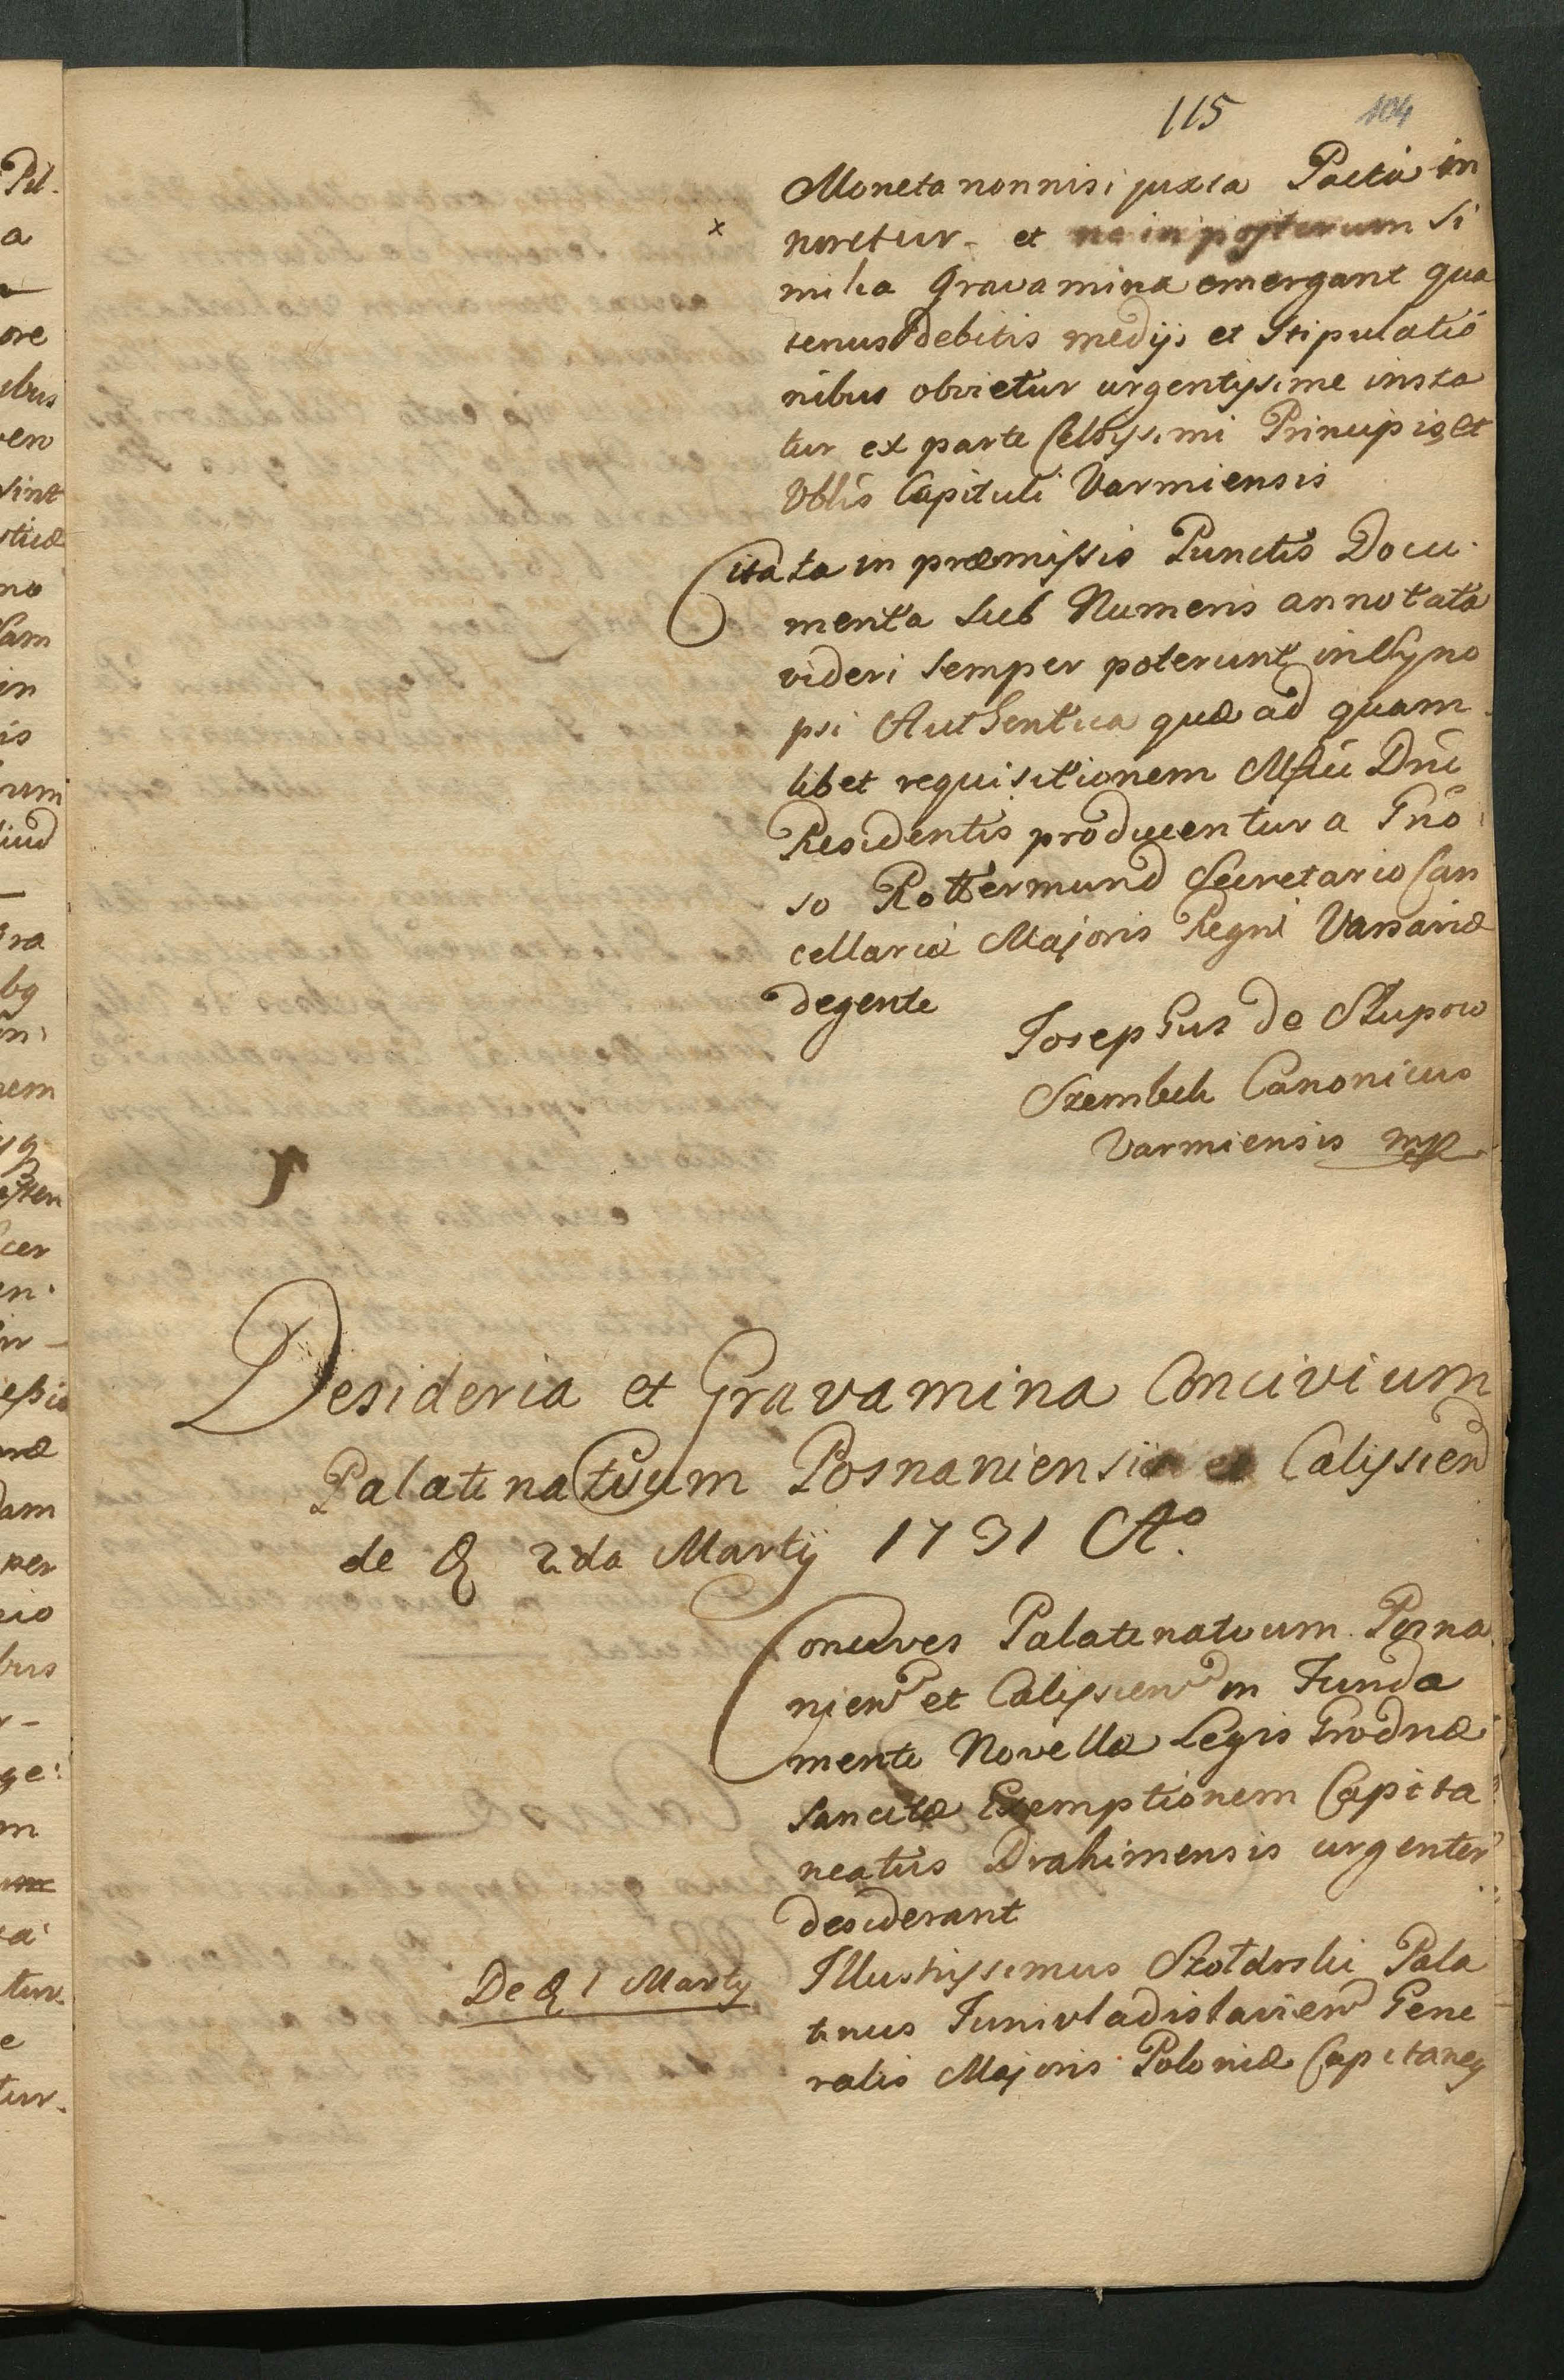 115 104
Moneta nonnisi juxta Pacta in
x noretur. et ne in posterum Si
milia Gravamina emergant qua
tenus debitis medijs et Stipulatio
nibus obvietur urgentissime insta
tur ex parte Celsissimi Principis et
Vblis Capituli Varmiensis
Citata in præmissis Punctis Docu
menta Sub Numeris annotata
videri Semper poterunt in Syno
psi Authentica quæ ad quam
libet requisitionem Mfici Dni
Residentis producentur a Gño
so Rottermund Secretario Can
cellariæ Majoris Regni Varsaviæ
degente
Josephus de Słupow
Szembek Canonicus
Varmiensis mp
Desideria et Gravamina Concivium
Palatinatuum Posnaniensis et Calissien
de & 2da Martij 1731 Ao.
Concives Palatinatuum Posna
nien et Calissien in Funda
mento Novellæ Legis Grodnæ
Sancitæ Exemptionem Capita
neatus Drahimensis urgenter
desiderant
De & 1 Martij
Illustrissimus Szołdrski Pala
tinus Junivladislavien Gene
ralis Majoris Poloniæ Capitaney